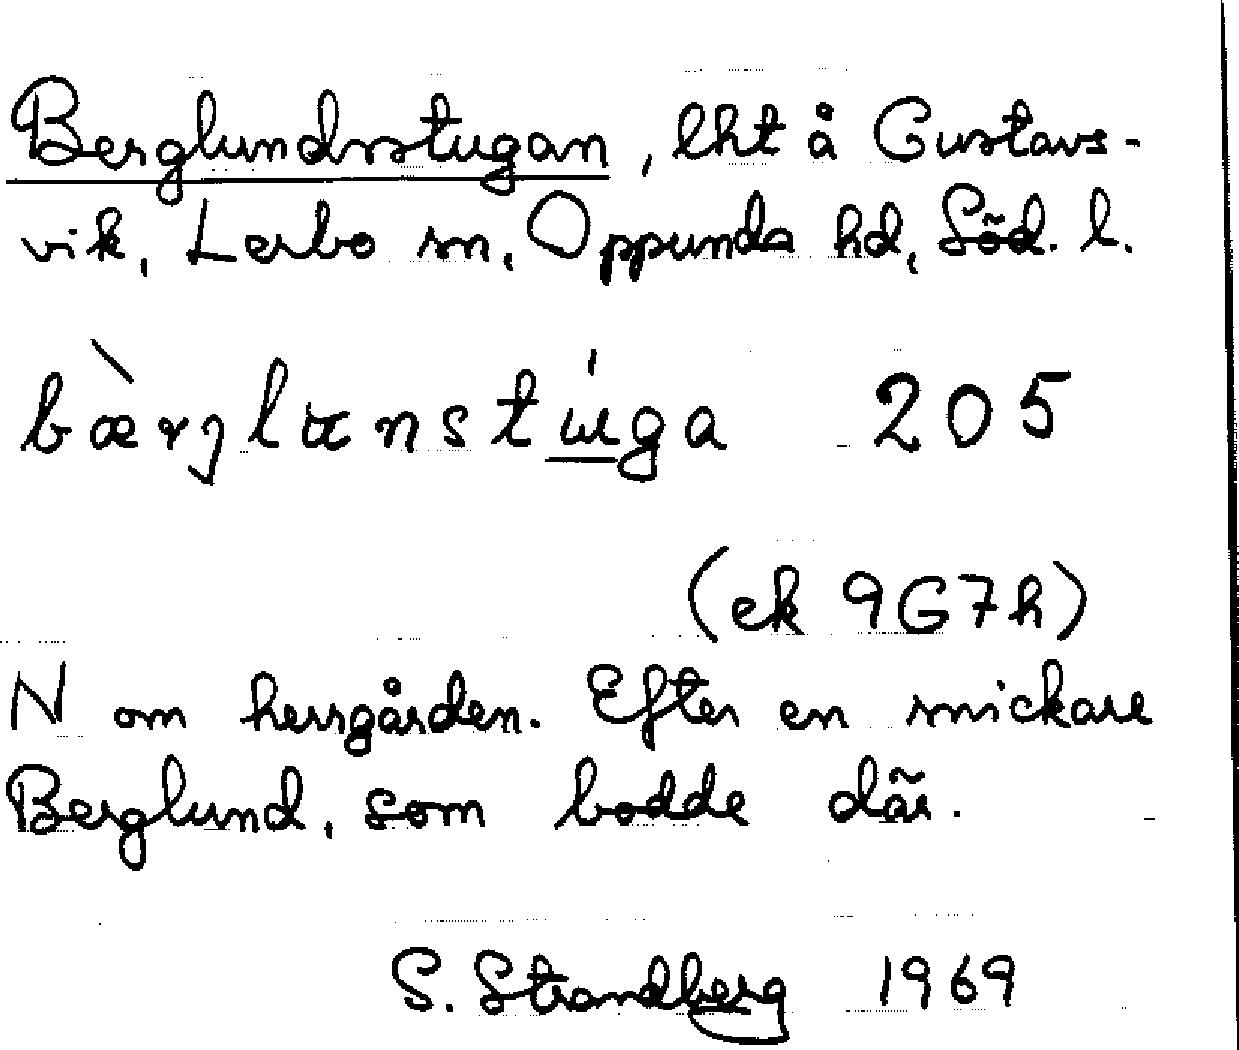 Berglundsstugan, lht å Gustavs-
vik, Lerbo sn, Oppunda hd, Söd. l.
205
(ek 9G7h)
N om herrgården. Efter en snickare
Berglund, som bodde där.
S. Strandberg 1969